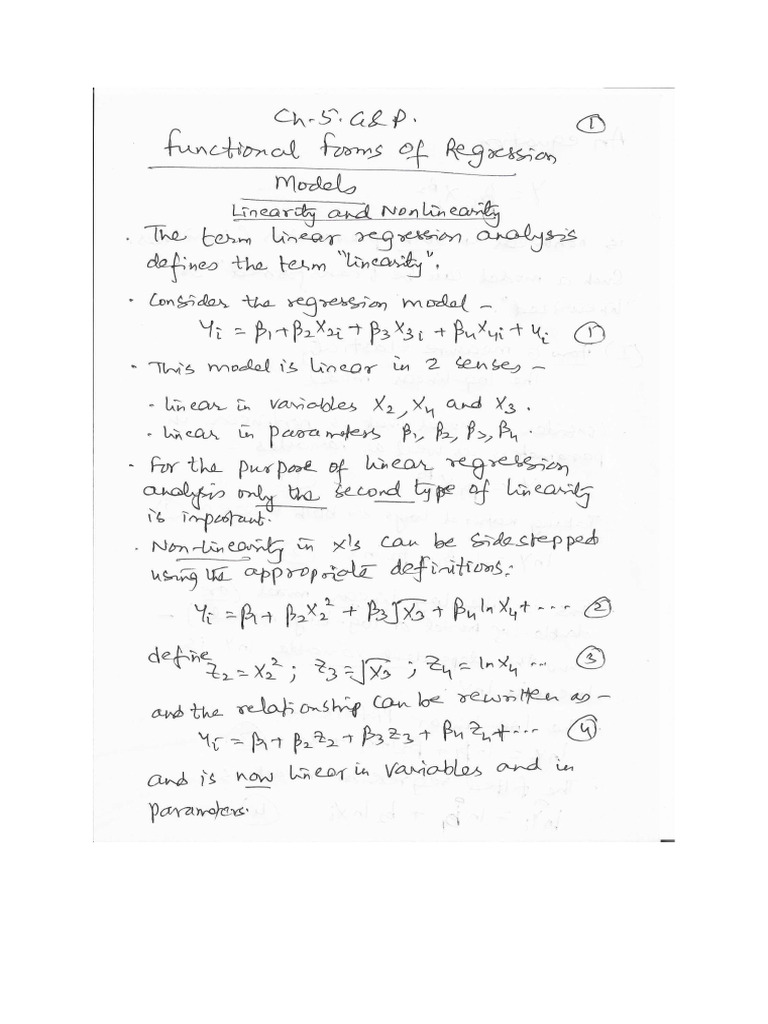 Ch.5. G&P. ①
Functional Forms of Regression
Models
Linearity and NonLinearity
. The term linear regression analysis
defines the term "linearity".
. Consider the regression model –
Yi = β1 + β2X2i + β3X3i + β4X4i + ui ①
. This model is linear in 2 senses –
. linear in variables X2, X4 and X3.
. linear in parameters β1, β2, β3, β4.
. For the purpose of linear regression
analysis only the second type of linearity
is important.
. Non-linearity in x's can be sidestepped
using the appropriate definitions:
Yi = β1 + β2X2² + β3√X3 + β4 lnX4 + ... ②
define
Z2 = X2² ; Z3 = √X3 ; Z4 = lnX4 ... ③
and the relationship can be rewritten as –
Yi = β1 + β2Z2 + β3Z3 + β4Z4 + ... ④
and is now linear in variables and in
parameters.